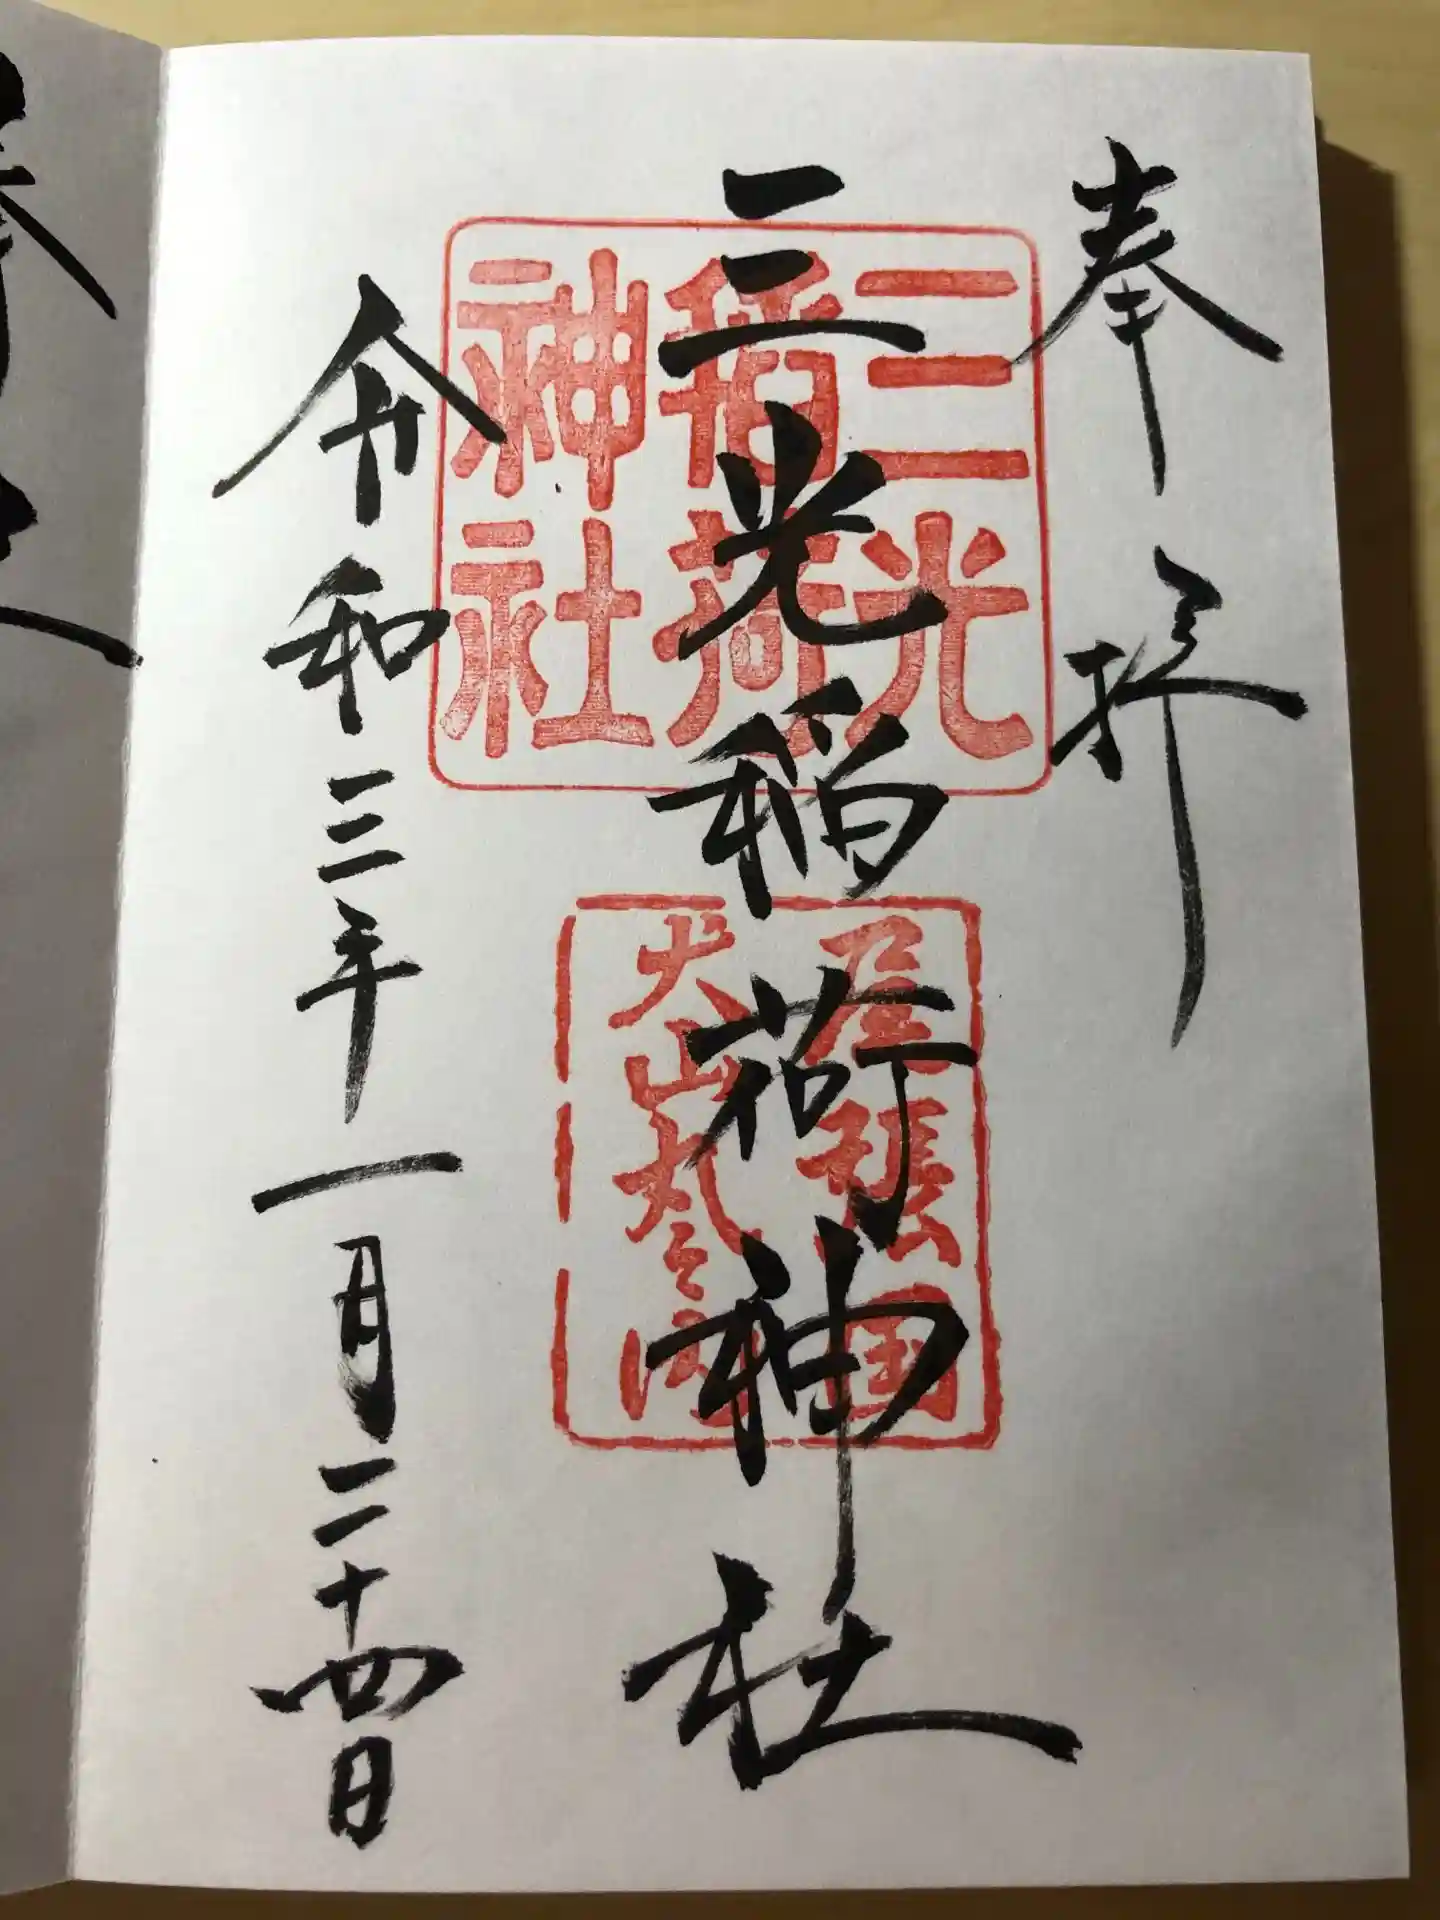 奉拝
三光稲荷神社
令和三年一月二十四日
三光
稲荷
神社
尾張国
犬山丸之内